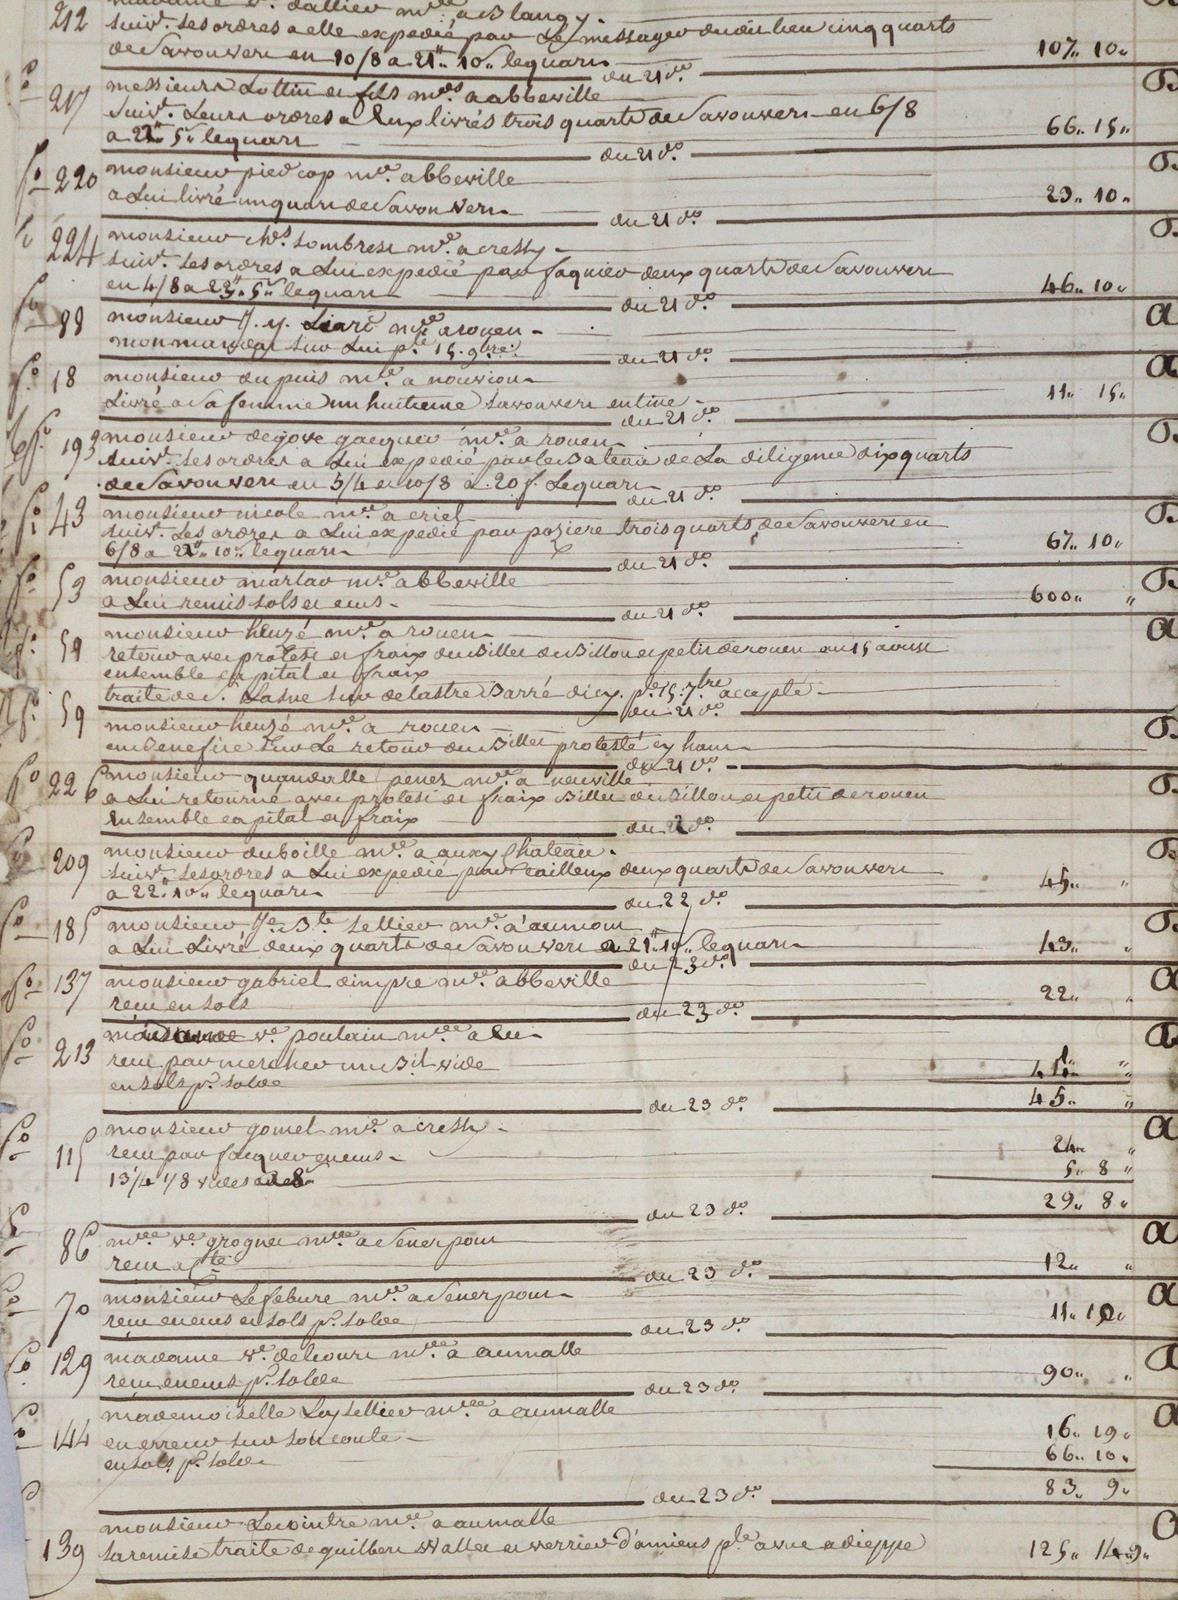 madame v.e dallier m.de a Blangy.
212 suiv.t ses ordres a elle expedié par Le messager dudit lieu cinq quarts
de savon vert en 10/8 a 21" 10.. le quart 107.. 10..
du 21 d.o
f.o 217 messieurs Lottin et fils m.ds a abbeville
suiv.t Leurs ordres a Eux livrés trois quarts de savon vert en 6/8
a 22" 5.. le quart 66.. 15..
du 21 d.o
f.o 220 monsieur pied cop m.d abbeville
a Lui livré un quart de savon vert 23.. 10..
du 21 d.o
f.o 224 monsieur ch.s sombret m.d a cressy
suiv.t ses ordres a Lui expedié par Jaquier deux quarts de savon vert
en 4/8 a 23" 5.. le quart 46.. 10..
du 21 d.o
f.o 88 monsieur J. y. Liard m.d a rouen
mon mandat sur Lui p.le 15. 9bre.
du 21 d.o
f.o 18 monsieur dupuis m.d a nouvion
Livré a sa femme un huitieme savon vert en tine 11.. 15..
du 21 d.o
f.o 193 monsieur degove jacques m.d a rouen
suiv.t ses ordres a Lui expedié par le Bateau de La diligence dix quarts
de savon vert en 5/4 et 10/8 a 20 f. Le quart
du 21 d.o
f.o 43 monsieur nicole m.d a criel
suiv.t ses ordres a Lui expedié par poziere trois quarts de savon vert en
6/8 a 22" 10.. le quart 67.. 10..
du 21 d.o
f.o 53 monsieur martar m.d abbeville
a Lui remis sols et ecus 600.. "
du 21 d.o
f.o 59 monsieur heuzé m.d a rouen
retour avec protest et fraix du Billet du Billon et petit de rouen au 15 aoust
ensemble capital et fraix
traite de s. Lasne sur delastre Barré diey. p.le 15. 7bre accepté
du 21 d.o
f.o 59 monsieur heuzé m.d a rouen
en Benefice sur Le retour du Billet protesté cy haut
du 21 d.o
f.o 226 monsieur quandalle m.d a neuville
a Lui retourné avec protest et fraix Billet du Billon et petit de rouen
Ensemble capital et fraix
du 22 d.o
209 monsieur duboille m.d a auxy Chateau
suiv.t ses ordres a Lui expedié par cailleux deux quarts de savon vert
a 22" 10.. le quart 45.. "
du 22 d.o
f.o 185 monsieur J.n B.te sellier m.d a aumont
a Lui Livré deux quarts de savon vert a 21" 10.. le quart 43.. "
du 23 d.o
f.o 137 monsieur gabriel dimpre m.d abbeville
recu en sols 22.. "
du 23 d.o
f.o 213 v.e poulain m.de a Eu
recu par mercher un Bil vide 1.. "
en sols p.r solde 44.. "
45.. "
du 23 d.o
f.o 115 monsieur gomel m.d a cressy
recu par Jacquier en ecus 24.. "
13/4 1/8 vides 5.. 8 "
29.. 8..
du 23 d.o
f.o 86 m.e v.e grognet m.de a Senerpont
recu a c.te 12.. "
du 23 d.o
f.o 70 monsieur Lefebure m.d a Senerpont
recu en ecus et sols p.r solde 11.. 10..
du 23 d.o
f.o 129 madame v.e delcourt m.de a aumalle
recu en ecus p.r solde 90.. "
du 23 d.o
f.o 144 mademoiselle Loy sellier m.de a aumalle
en erreur sur son conte 16.. 19..
en sols p.r solde 66.. 10..
83.. 9..
du 23 d.o
139 monsieur Lecointre m.d a aumalle
sa remise traite de guilbert Watter et verrier d'amiens p.le a vue a dieppe 125.. 14..9..